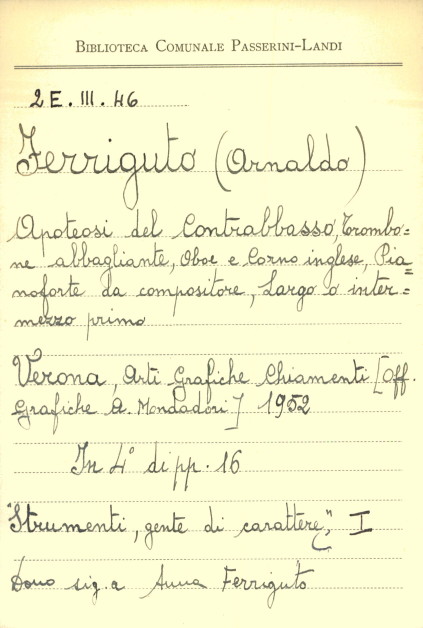 BIBLIOTECA COMUNALE PASSERINI-LANDI
2E.III.46
Ferriguto (Arnaldo)
Apoteosi del Contrabbasso, Trombo=
ne abbagliante, Oboe e Corno inglese, Pia=
noforte da compositore, Largo o inter=
mezzo primo
Verona, Arti Grafiche Chiamenti [Off.
Grafiche A. Mondadori] 1952
In 4° di pp. 16
"Strumenti, gente di carattere", I
Dono sig.a Anna Ferriguto